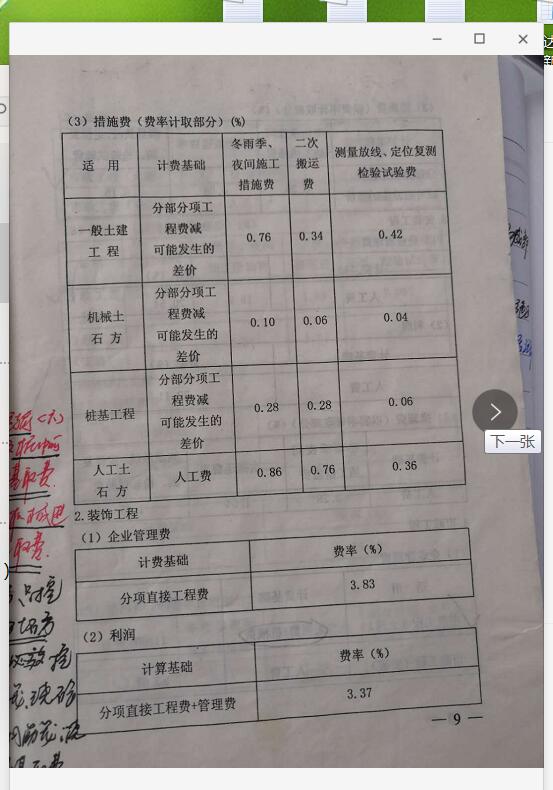 (3) 措施费（费率计取部分）(%)
适 用
计费基础
冬雨季、
夜间施工
措施费
二次
搬运
费
测量放线、定位复测
检验试验费
一般土建
工 程
分部分项工
程费减
可能发生的
差价
0.76
0.34
0.42
机械土
石 方
分部分项工
程费减
可能发生的
差价
0.10
0.06
0.04
桩基工程
分部分项工
程费减
可能发生的
差价
0.28
0.28
0.06
人工土
石 方
人工费
0.86
0.76
0.36
2.装饰工程
(1) 企业管理费
计费基础
费率（%）
分项直接工程费
3.83
(2) 利润
计算基础
费率（%）
分项直接工程费+管理费
3.37
— 9 —
下一张
取费